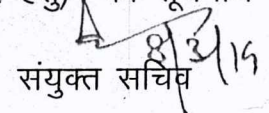 8/3/19
संयुक्त सचिव